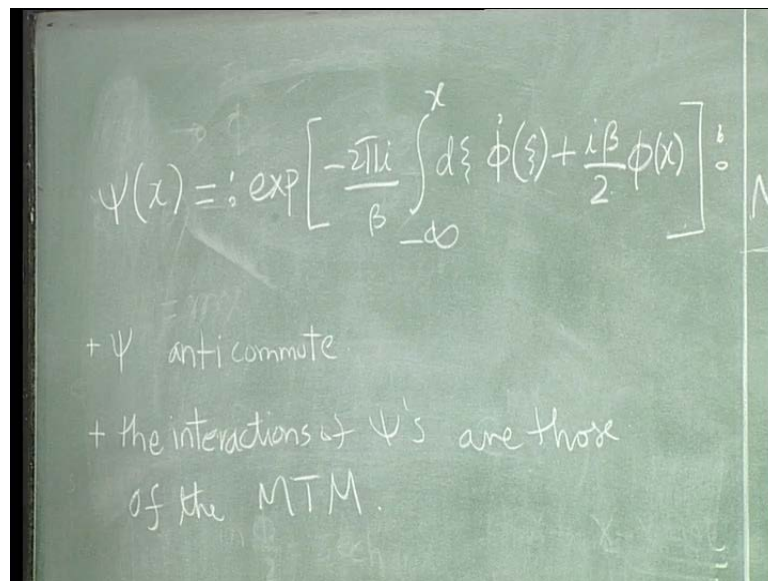 ψ(x) = : exp[ -2πi/β ∫_{-∞}^{x} dξ φ̇(ξ) + iβ/2 φ(x) ] :
+ ψ anticommute
+ the interactions of ψ's are those
of the MTM.